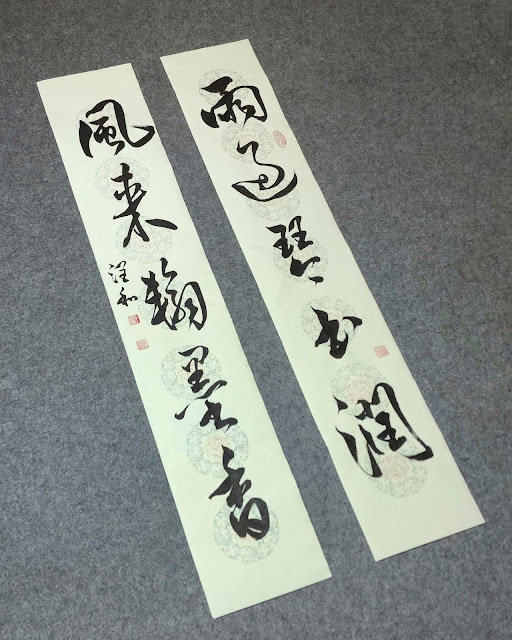 雨過琴書潤
風来翰墨香
涇和